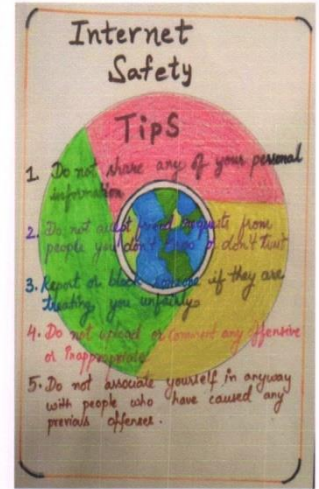 Internet
Safety
Tips
1. Do not share any of your personal
information
2. Do not friend requests from
people you don't or don't trust
3. Report or block someone if they are
treating you unfairly
4. Do not upload or Comment any offensive
or Inappropriate
5. Do not associate yourself in anyway
with people who have caused any
previous offenses.